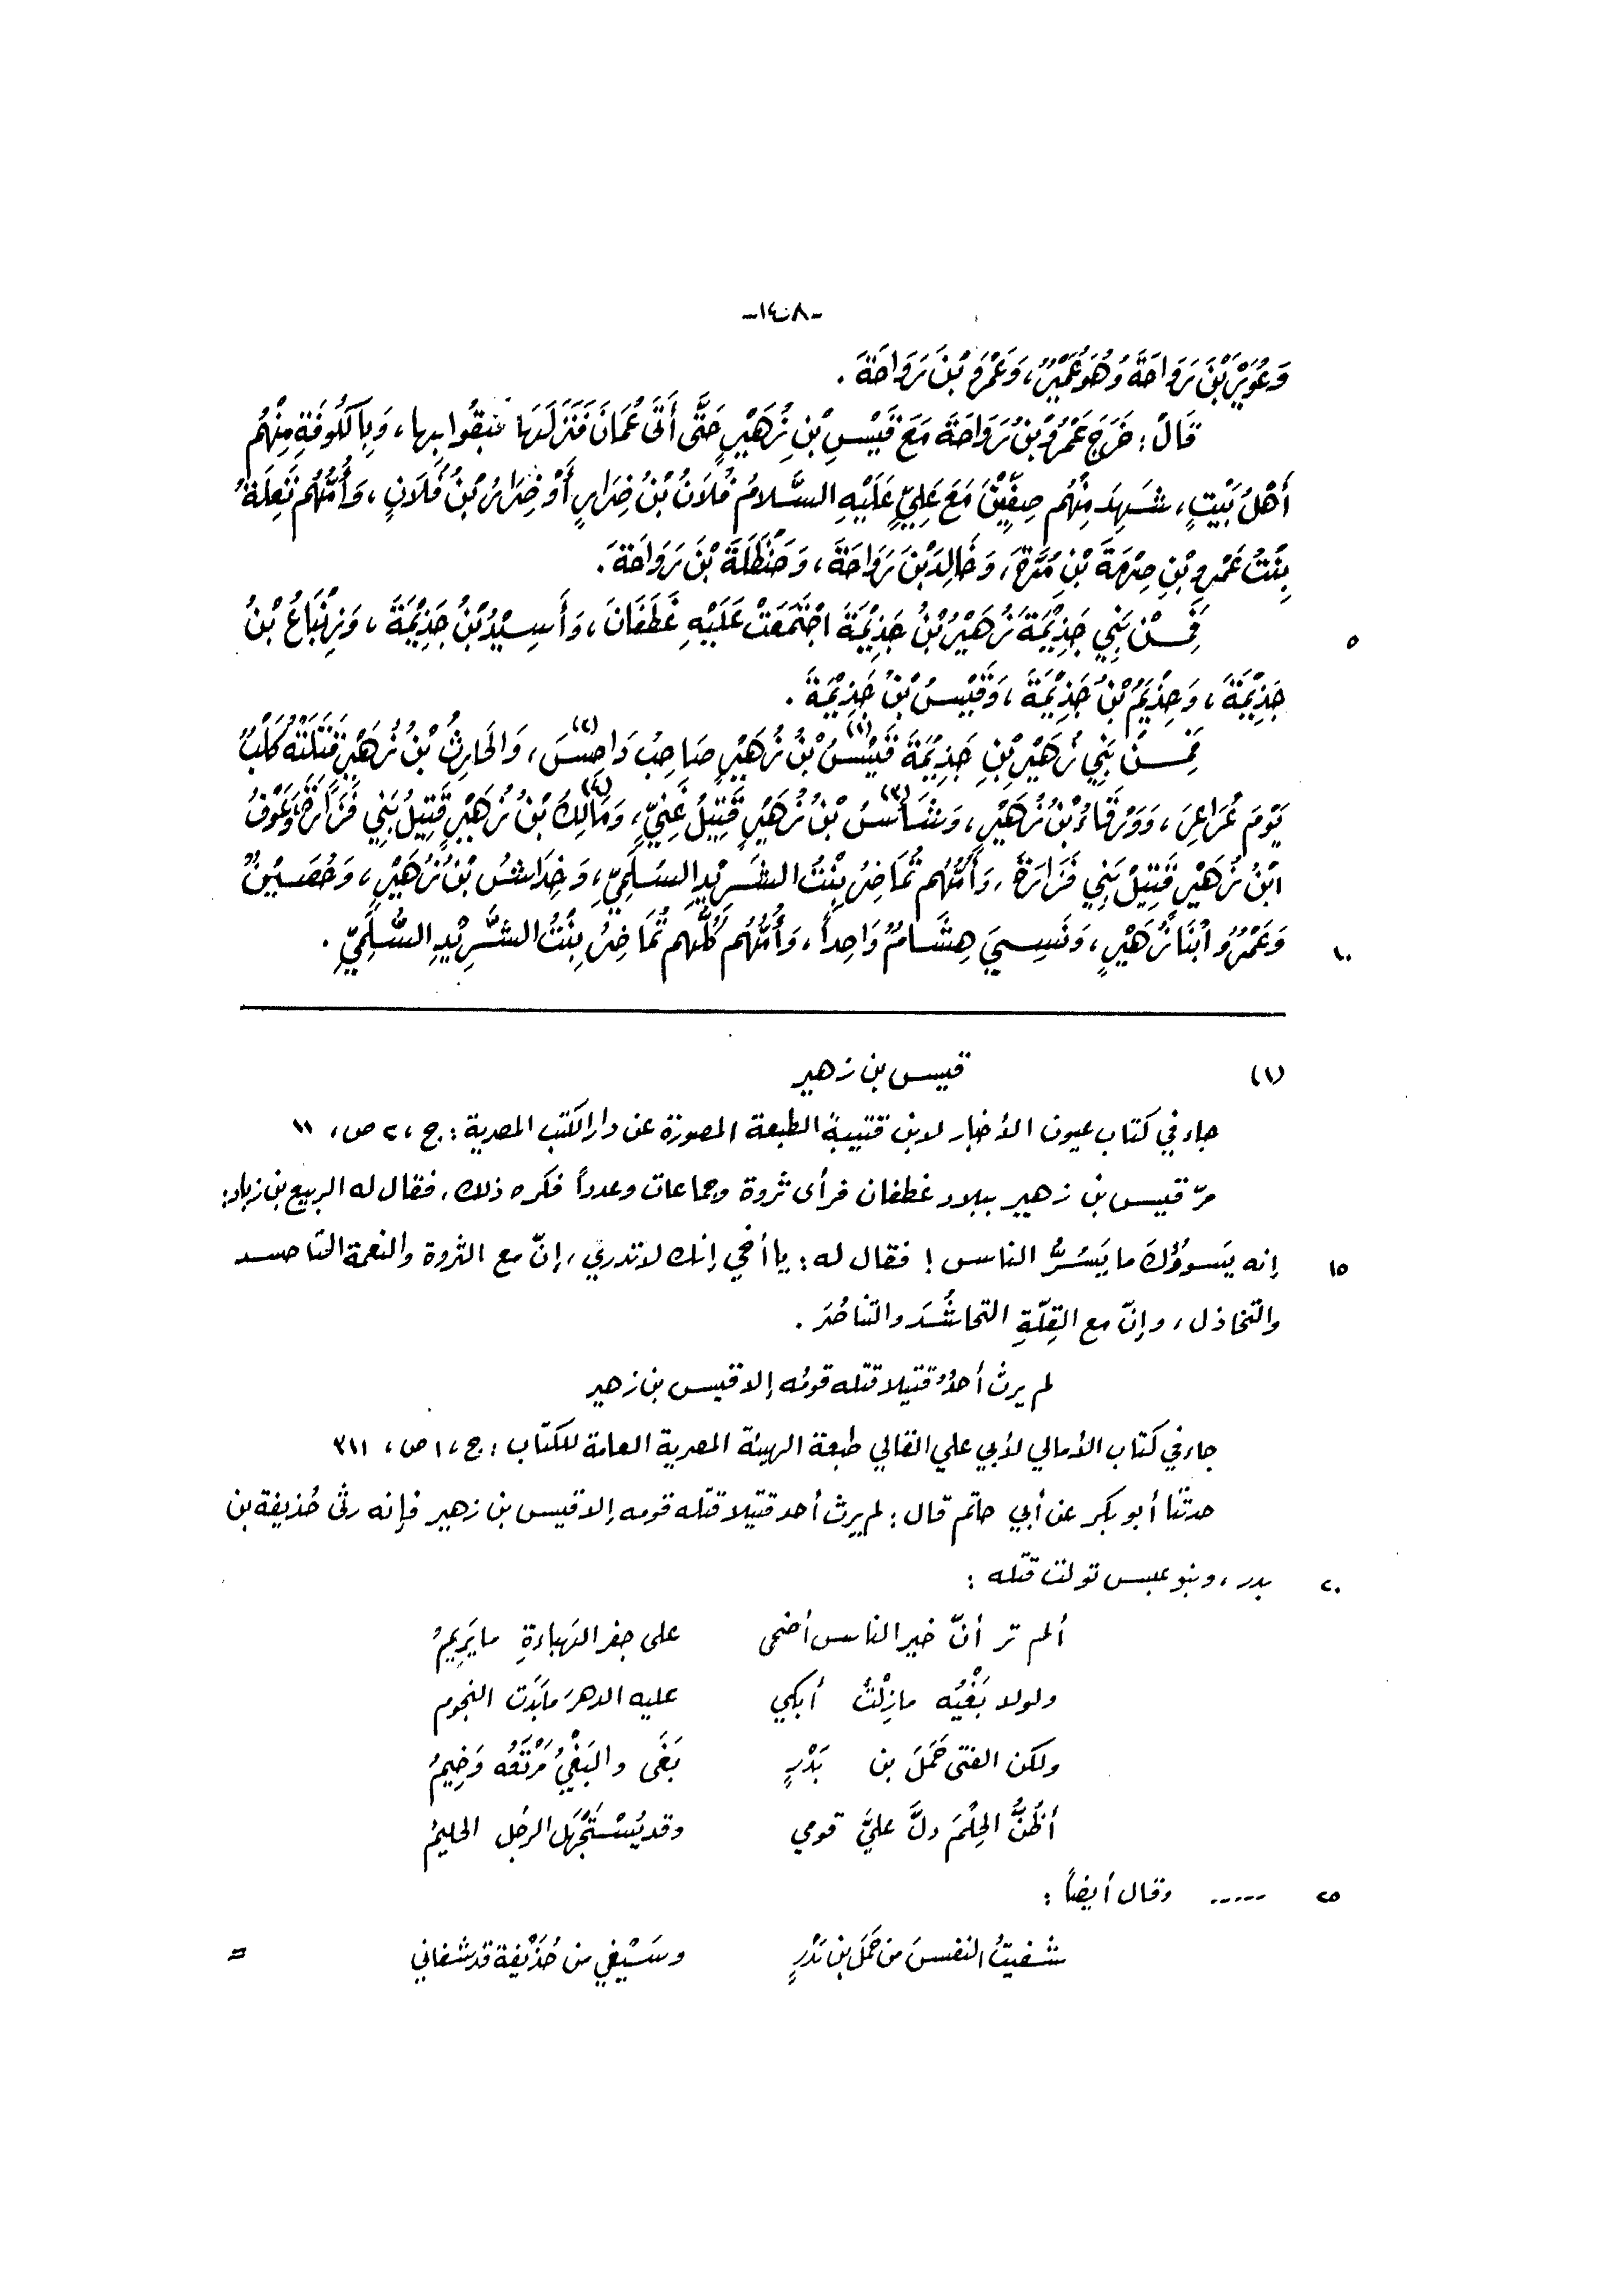 -١٤٠٨-
وَعُوَيْرَ بْنَ رَوَاحَةَ وَهُوَ عُمَيْرٌ، وَعَمْرَو بْنَ رَوَاحَةَ.
قَالَ: خَرَجَ عَمْرُو بْنُ رَوَاحَةَ مَعَ قَيْسِ بْنِ زُهَيْرٍ حَتَّى أَتَى عُمَانَ فَنَزَلَهَا فبَقُوا بِها، وَبِالْكُوفَةِ مِنْهُم
أَهْلُ بَيْتٍ، شَهِدَ مِنْهُم صِفِّيْنَ مَعَ عَلِيٍّ عَلَيْهِ السَّلامُ فُلَانُ بْنُ ضِرَارٍ أَوْ ضِرَارُ بْنُ فُلَانٍ، وَأُمُّهُم نُعِلَةُ
بِنْتُ عَمْرِو بْنِ صِرْمَةَ بْنِ مُرَّةَ، وَخَالِدَ بْنَ رَوَاحَةَ، وَحَنْظَلَةَ بْنَ رَوَاحَةَ.
٥ فَمِنْ بَنِي جَذِيْمَةَ زُهَيْرُ بْنُ جَذِيْمَةَ اجْتَمَعَتْ عَلَيْهِ غَطَفَانُ، وَأَسِيْدُ بْنُ جَذِيْمَةَ، وَزِنْبَاعُ بْنُ
جَذِيْمَةَ، وَحِذْيَمُ بْنُ جَذِيْمَةَ، وَقَيْسُ بْنُ جَذِيْمَةَ.
فَمِنْ بَنِي زُهَيْرِ بْنِ جَذِيْمَةَ قَيْسُ(١) بْنُ زُهَيْرٍ صَاحِبُ دَاحِسَ(٢)، وَالحَارِثُ بْنُ زُهَيْرٍ قَتَلَتْهُ كَلْبٌ
يَوْمَ عُرَاعِرَ، وَوَرْقَاءُ بْنُ زُهَيْرٍ، وَشَأسُ(٣) بْنُ زُهَيْرٍ قَتِيْلُ غَنِيٍّ، وَمَالِكُ(٤) بْنُ زُهَيْرٍ قَتِيْلُ بَنِي فَزَارَةَ، وَعَوْفُ
ابْنُ زُهَيْرٍ قَتِيْلُ بَنِي فَزَارَةَ، وَأُمُّهُم تُمَاضِرُ بِنْتُ الشَّرِيْدِ السُّلَمِيِّ، وَخِدَاشُ بْنُ زُهَيْرٍ، وَحُصَيْنٌ
١٠ وَعَمْرٌو ابْنَا زُهَيْرٍ، وَنَسِيَ هِشَامٌ وَاحِداً، وَأُمُّهُم كُلُّهم تُمَاضِرُ بِنْتُ الشَّرِيْدِ السُّلَمِيِّ.
(١) قيس بن زهير
جاء في كتاب عيون الأخبار لابن قتيبة الطبعة المصورة عن دار الكتب المصرية: ج، ٢ ص، ١١
مرّ قيس بن زهير ببلاد غطفان فرأى ثروة وجماعات وعدداً فكره ذلك، فقال له الربيع بن زياد:
١٥ إنه يَسوؤُكَ ما يَسُرُّ الناس! فقال له: يا أخي إنك لا تدري، إنّ مع الثروة والنعمة التحاسد
والتخاذل، وإنّ مع القِلّةِ التحاشُدَ والتناصُرَ.
لم يرث أحدٌ قتيلا قتله قومُه إلا قيس بن زهير
جاء في كتاب الأمالي لأبي علي القالي طبعة الهيئة المصرية العامة للكتاب: ج، ١ ص، ٣١١
حدثنا أبو بكر عن أبي حاتم قال: لم يرث أحد قتيلا قتله قومه إلا قيس بن زهير فإنه رثى حُذيفة بن
٢٠ بدر، وبنو عبس تولت قتله:
ألم تر أنّ خير الناس أضحى على جفر الهباءةِ ما يَرِيمُ
ولولا بَغْيُه مازِلْتُ أبكي عليه الدهرَ ما بَدَت النجوم
ولكن الفتى حَمَلَ بن بَدْرٍ بَغَى والبَغْيُ مَرْتَعُه وَخِيمُ
أظُنُّ الحِلْمَ دلَّ عليَّ قومي وقد يُسْتَجْهَل الرجل الحليمُ
٢٥ ..... وقال أيضاً:
شفيتُ النفسَ من حَمَلَ بن بَدْرٍ وسَيْفِي من حُذَيْفة قد شفاني =